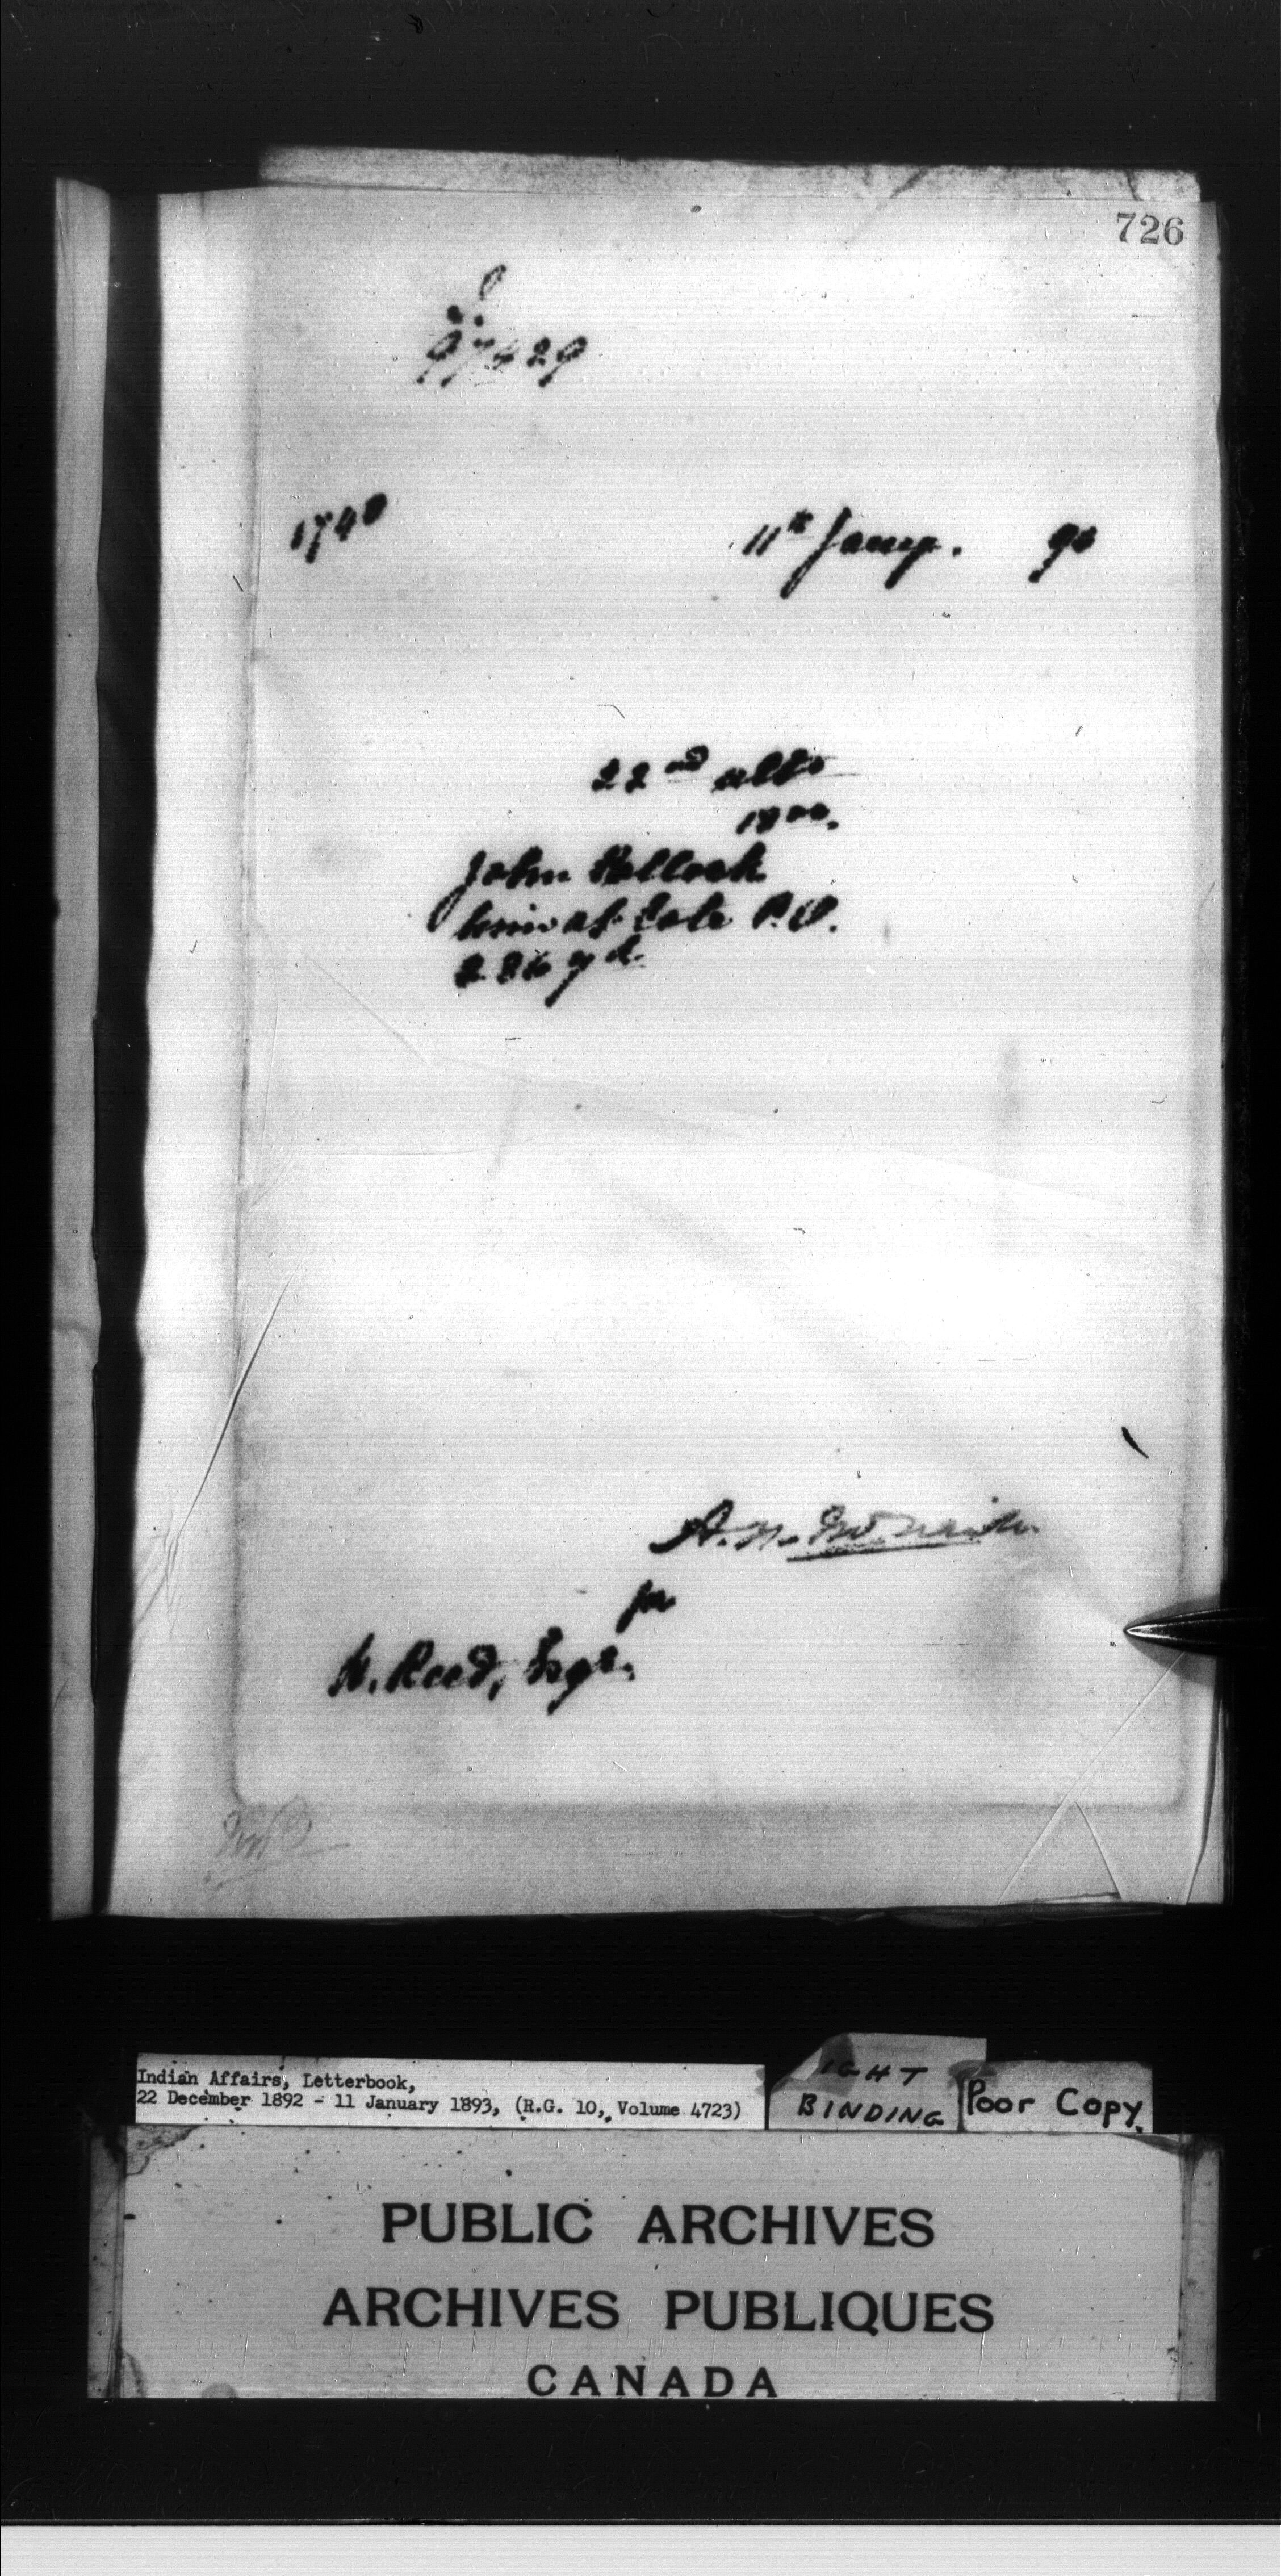 726
L.
97429
1740
11th Jany. 93
22nd ulto
18
John Pollock
P.O.
A. N. McNeill
for
H. Reed, Esqr.
Indian Affairs, Letterbook,
22 December 1892 - 11 January 1893, (R.G. 10, Volume 4723)
IGHT
BINDING
Poor Copy.
PUBLIC ARCHIVES
ARCHIVES PUBLIQUES
CANADA